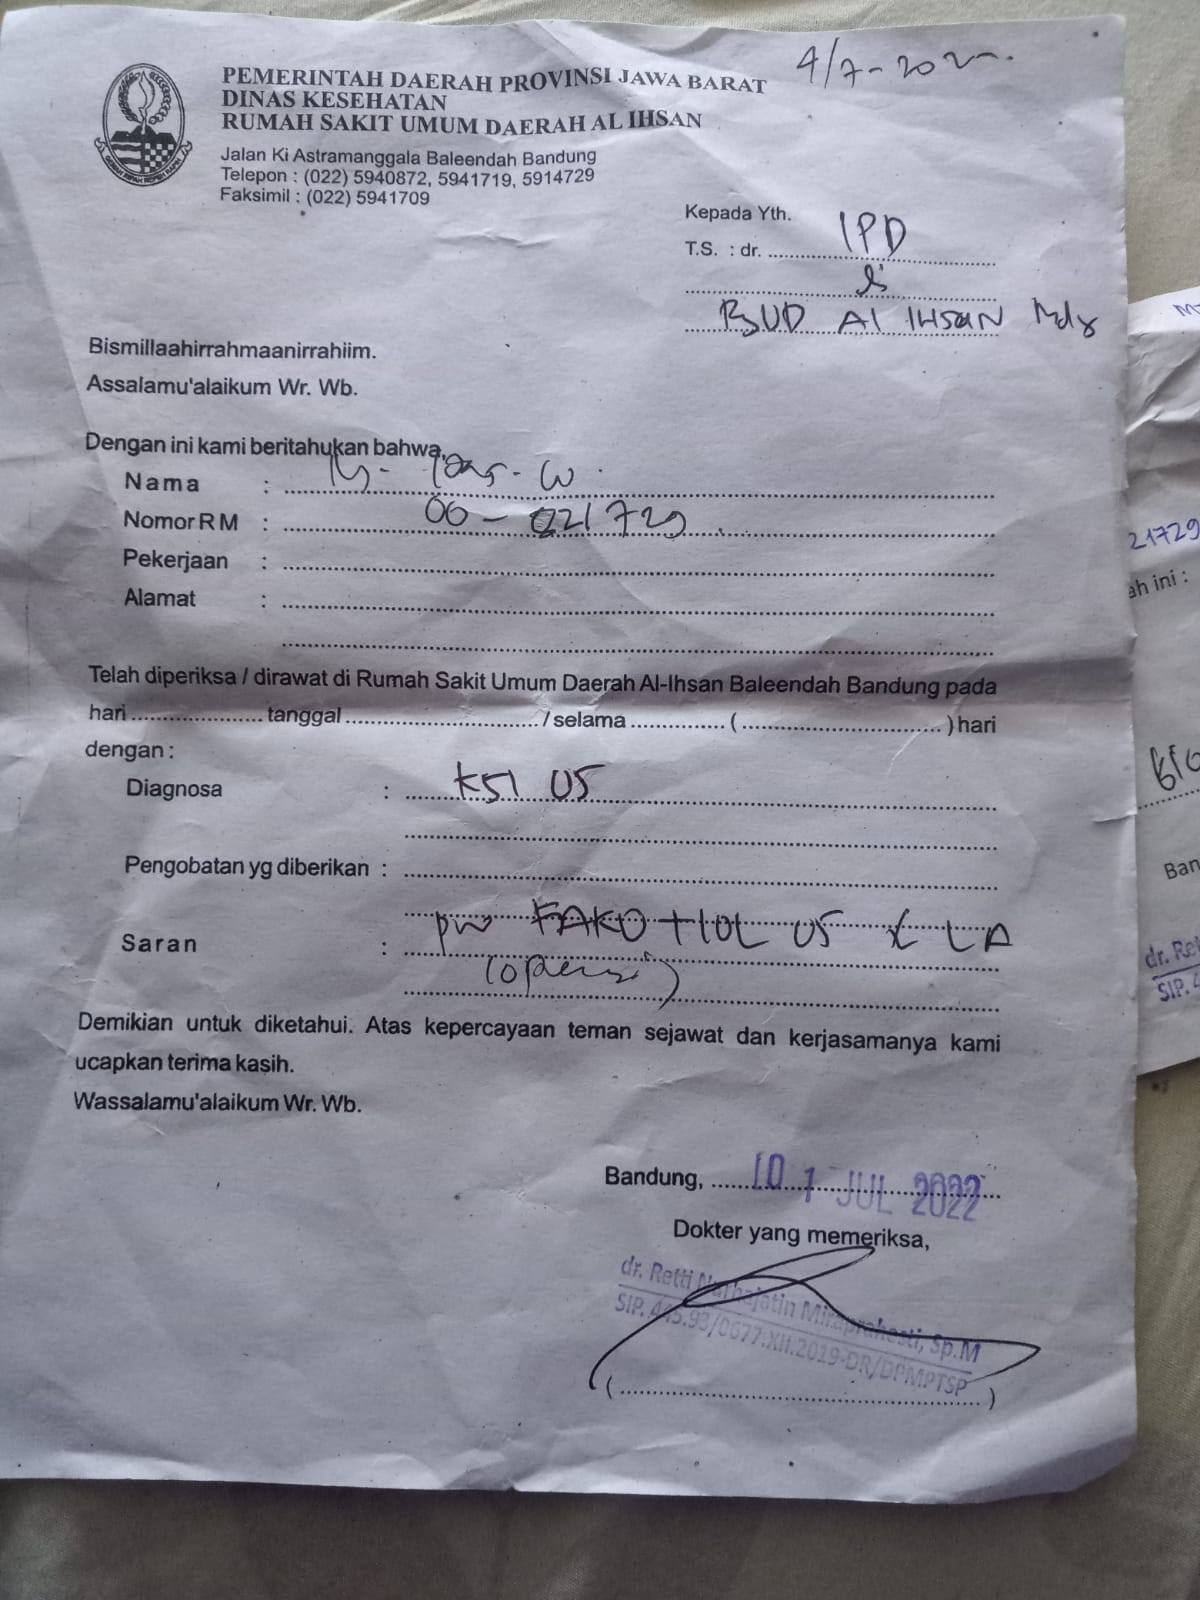 4/7-2022.
PEMERINTAH DAERAH PROVINSI JAWA BARAT
DINAS KESEHATAN
RUMAH SAKIT UMUM DAERAH AL IHSAN
Jalan Ki Astramanggala Baleendah Bandung
Telepon : (022) 5940872, 5941719, 5914729
Faksimil : (022) 5941709
Kepada Yth.
T.S. : dr. IPD
di
RSUD Al IHSAN
Bismillaahirrahmaanirrahiim.
Assalamu'alaikum Wr. Wb.
Dengan ini kami beritahukan bahwa,
Nama :
Nomor RM : 00-021729
Pekerjaan :
Alamat :
Telah diperiksa / dirawat di Rumah Sakit Umum Daerah Al-Ihsan Baleendah Bandung pada
hari .................... tanggal ............................. / selama .............. ( .............................. ) hari
dengan :
Diagnosa : KSI OS
Pengobatan yg diberikan :
Saran : pro FAKO + IOL OS LA
(operasi)
Demikian untuk diketahui. Atas kepercayaan teman sejawat dan kerjasamanya kami
ucapkan terima kasih.
Wassalamu'alaikum Wr. Wb.
Bandung, 01 JUL 2022
Dokter yang memeriksa,
dr. Retti Nurhajatin Miraprahesti, Sp.M
SIP. 445.93/0677.XII.2019-DR/DPMPTSP
21729
ah ini :
Ban
dr. Ret
SIP. 4